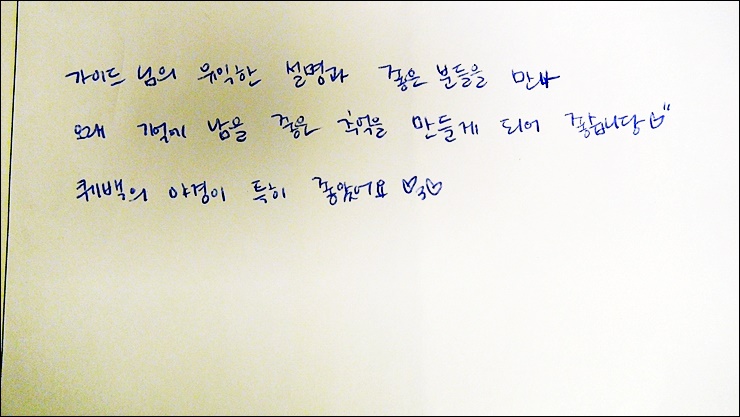 가이드 님의 유익한 설명과 좋은 분들을 만나
오래 기억에 남을 좋은 추억을 만들게 되어 좋습니당
퀘백의 야경이 특히 좋았어요 ♡3♡